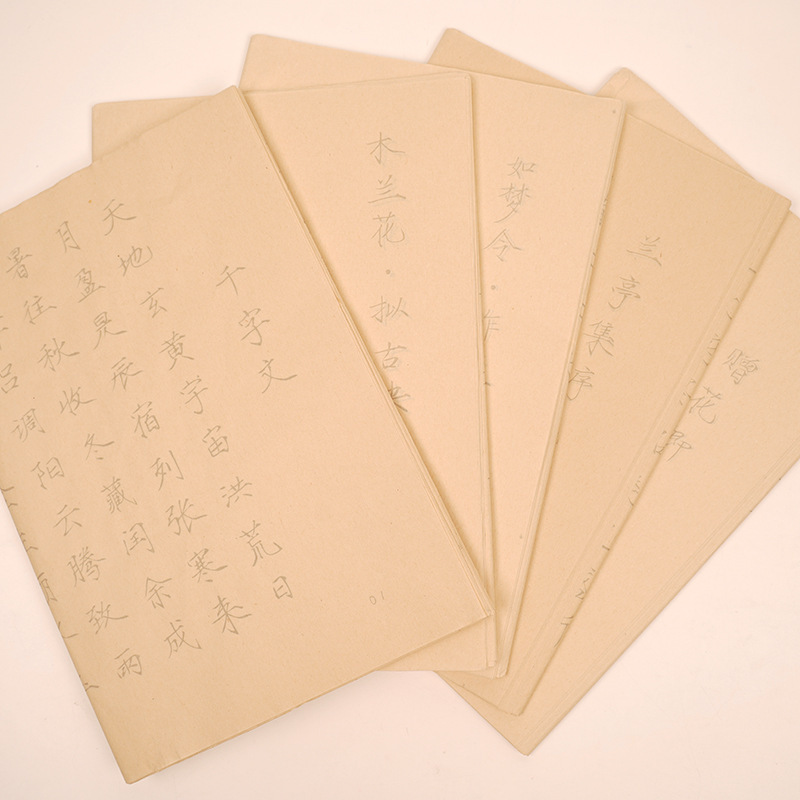 千字文
天地玄黄宇宙洪荒日
月盈昃辰宿列张寒来
暑往秋收冬藏闰余成
吕调阳云腾致雨
01
木兰花·拟古
如梦令·
兰亭集序
赠花卿